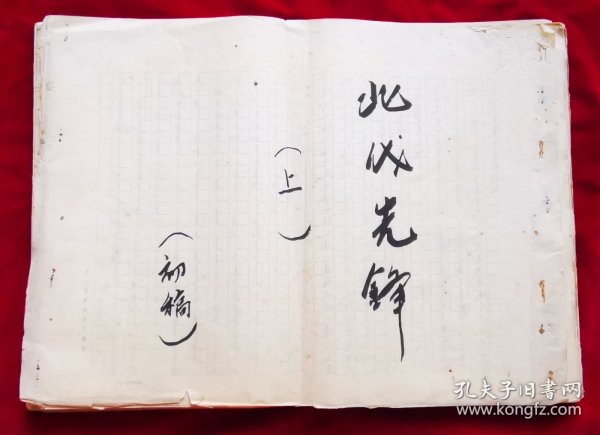 北伐先锋
（上）
（初稿）
孔夫子旧书网
www.kongfz.com